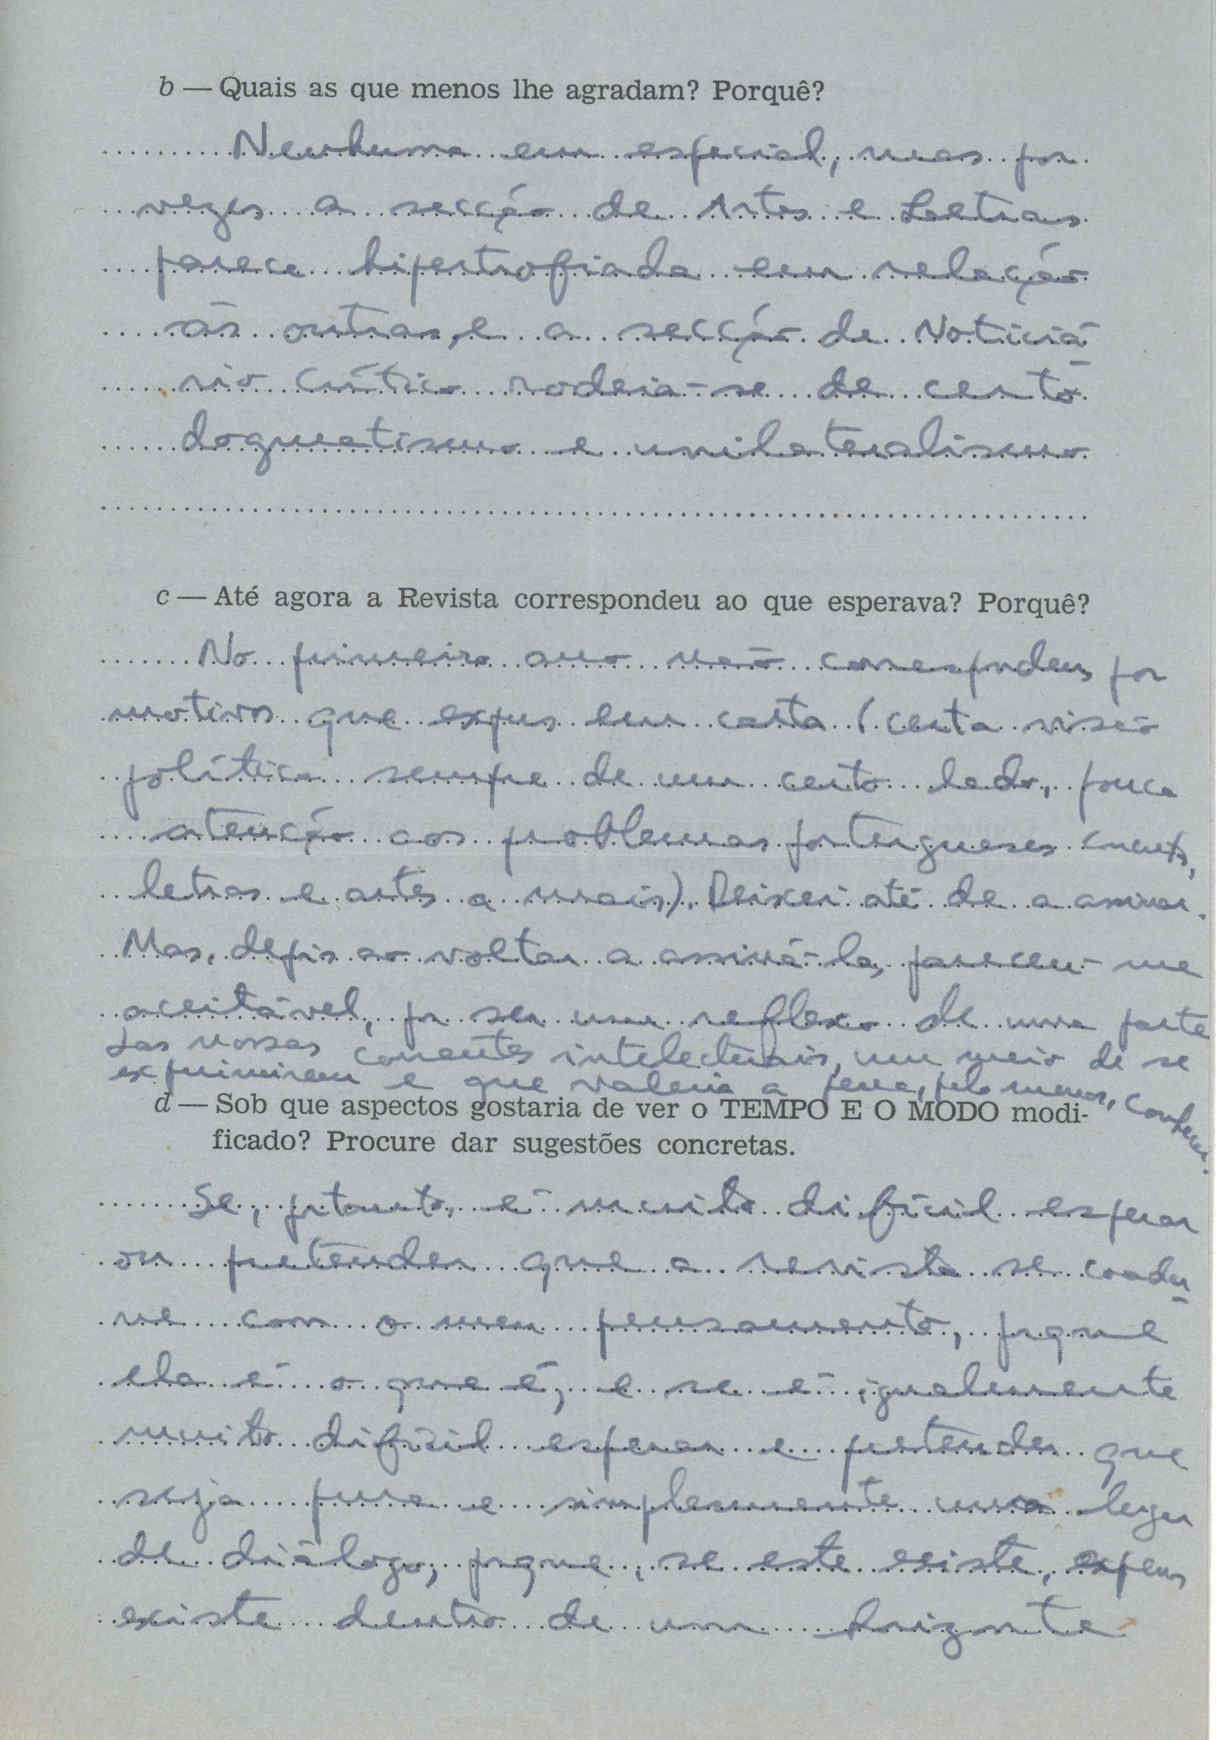 b — Quais as que menos lhe agradam? Porquê?
Nenhuma em especial, mas por
vezes a secção de Artes e Letras
parece hipertrofiada em relação
às outras, e a secção de Noticiá-
rio Crítico rodeia-se de certo
dogmatismo e unilateralismo
c — Até agora a Revista correspondeu ao que esperava? Porquê?
No primeiro ano não correspondeu, por
motivos que expus em carta (certa visão
política sempre de um certo lado, pouca
atenção aos problemas portugueses
letras e artes a mais). Deixei até de a assinar.
Mas, depois ao voltar a assiná-la, pareceu-me
aceitável, por ser um reflexo de uma parte
das nossas correntes intelectuais, um meio de se
exprimirem e que valeria a pena, pelo menos, conhecer.
d — Sob que aspectos gostaria de ver o TEMPO E O MODO modi-
ficado? Procure dar sugestões concretas.
Se, portanto, é muito difícil esperar
ou pretender que a revista se coadu-
ne com o meu pensamento, porque
ela é o que é, e se é igualmente
muito difícil esperar e pretender que
seja pura e simplesmente um lugar
de diálogo, porque, se este existe, apenas
existe dentro de um horizonte